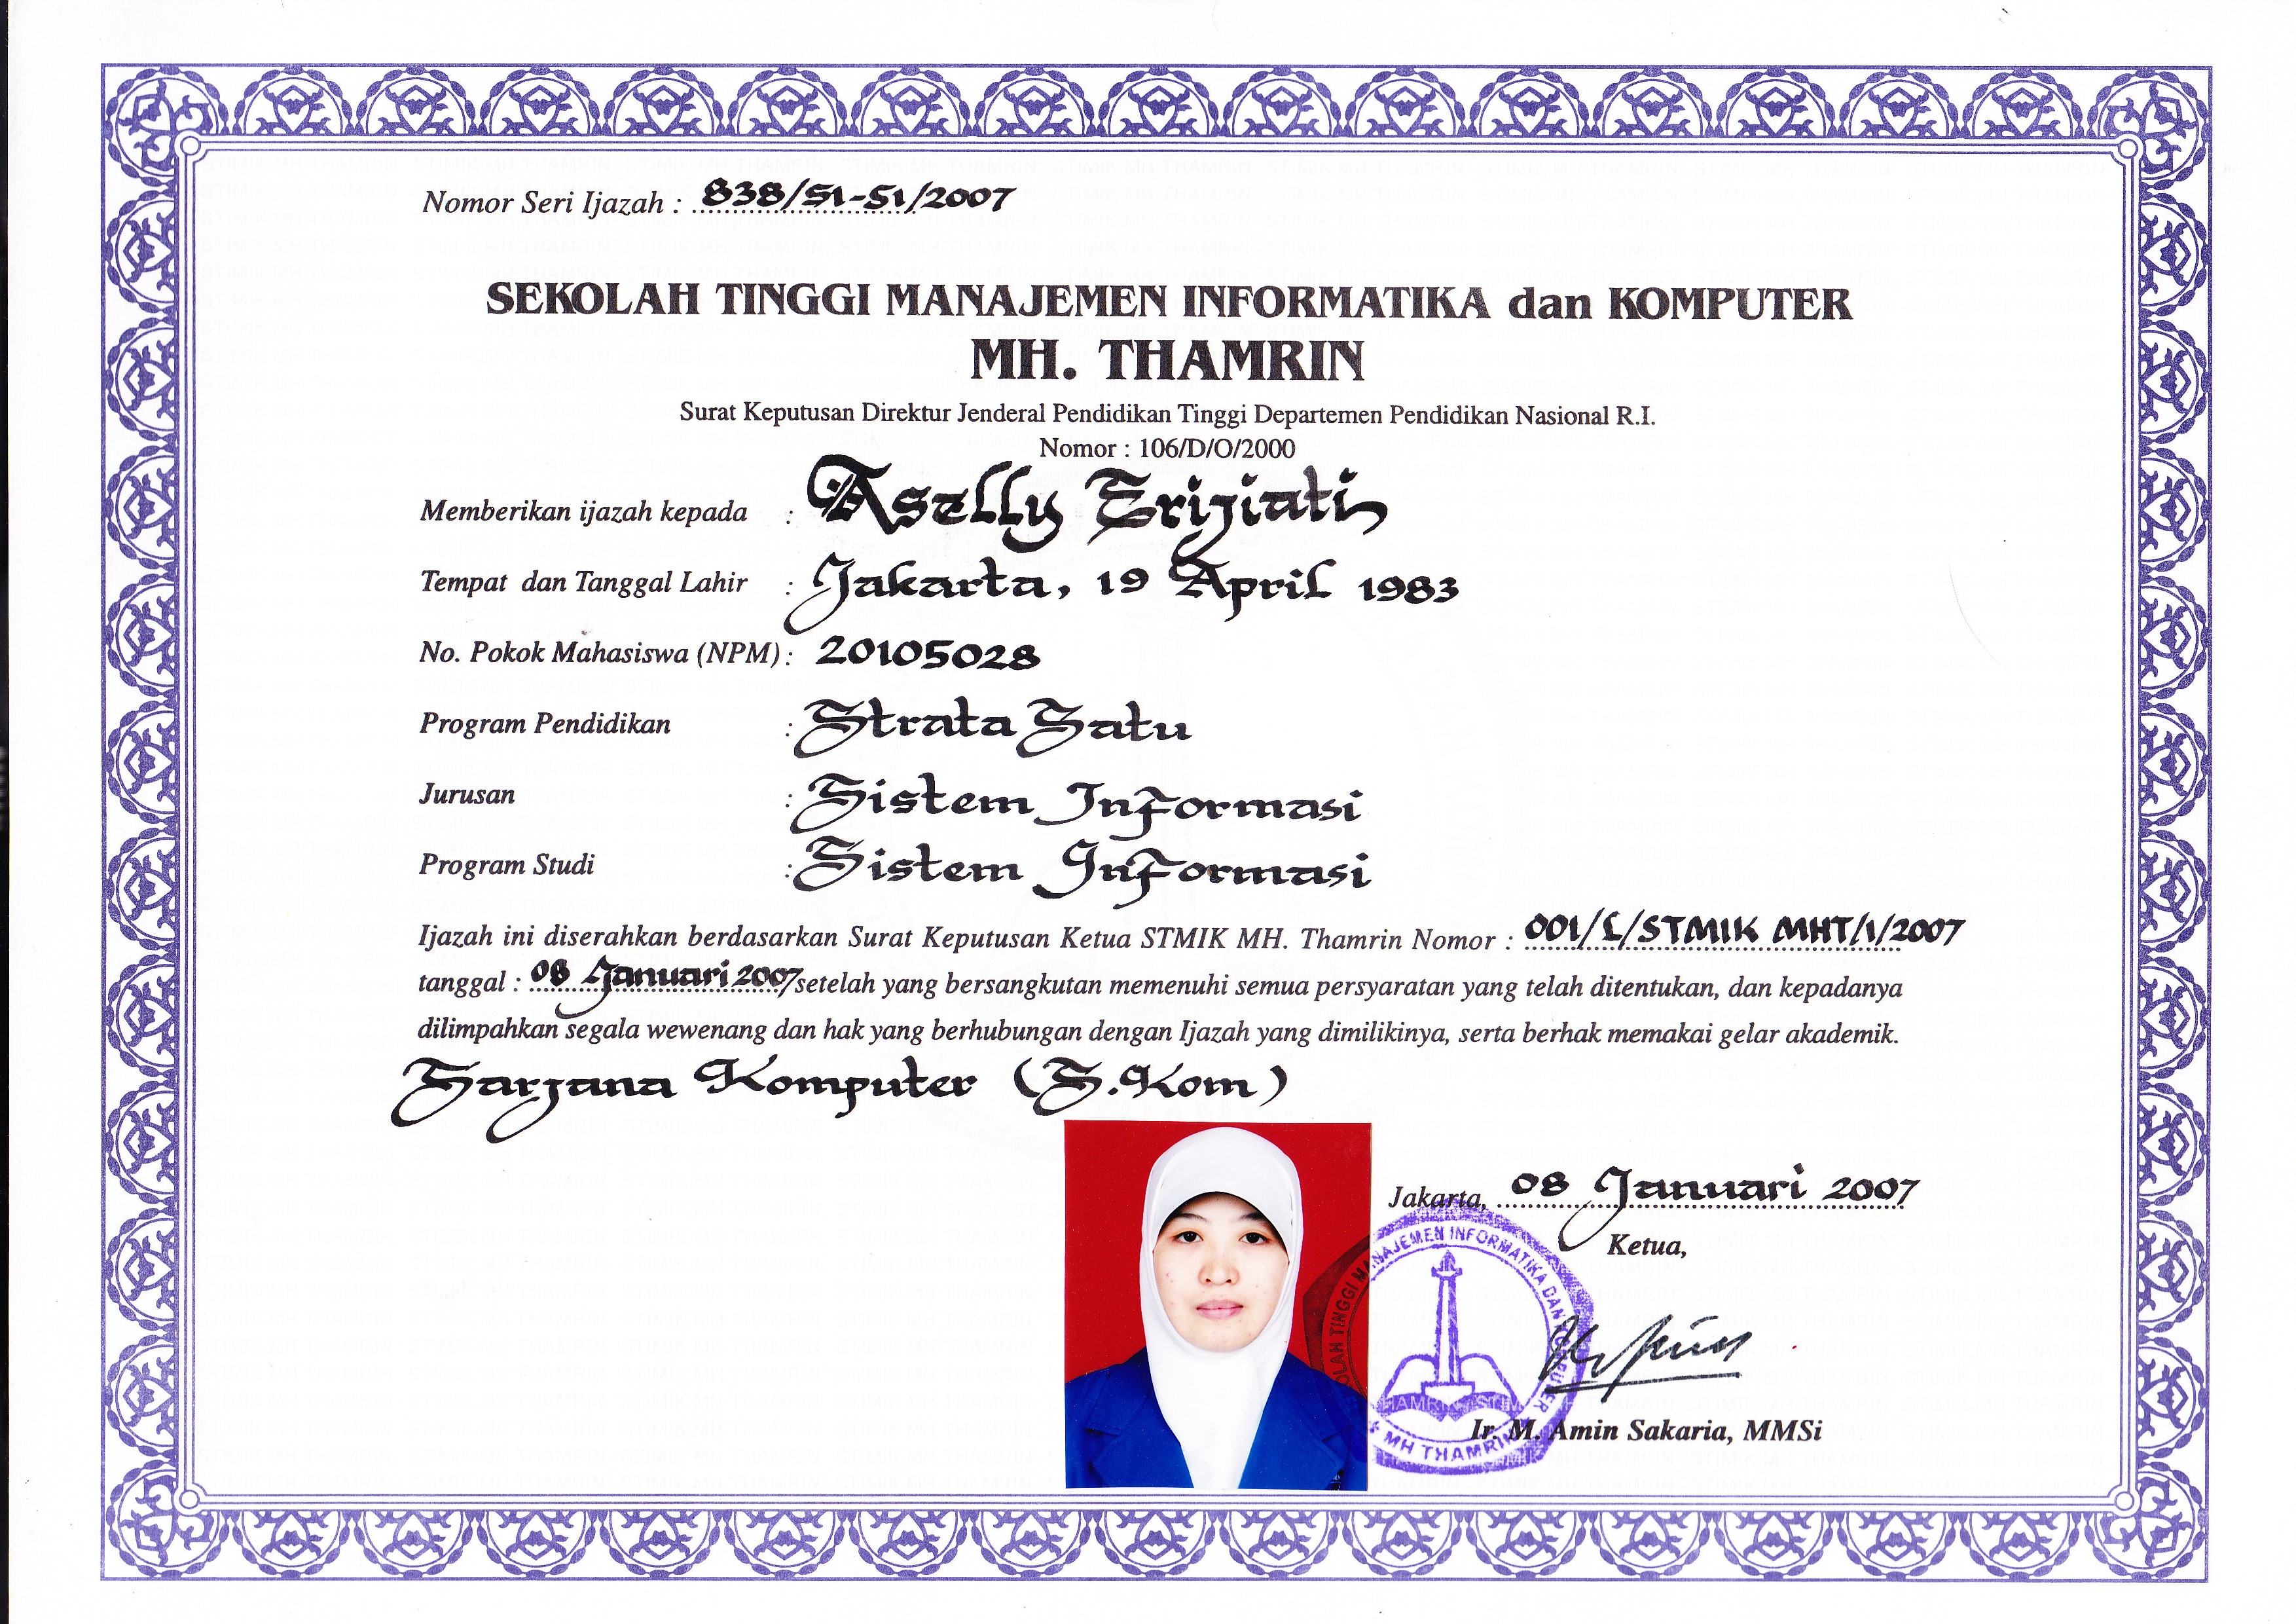 Nomor Seri Ijazah : 838/S1-S1/2007
SEKOLAH TINGGI MANAJEMEN INFORMATIKA dan KOMPUTER
MH. THAMRIN
Surat Keputusan Direktur Jenderal Pendidikan Tinggi Departemen Pendidikan Nasional R.I.
Nomor : 106/D/O/2000
Memberikan ijazah kepada : Aselly Trijiati
Tempat dan Tanggal Lahir : Jakarta, 19 April 1983
No. Pokok Mahasiswa (NPM) : 20105028
Program Pendidikan : Strata Satu
Jurusan : Sistem Informasi
Program Studi : Sistem Informasi
Ijazah ini diserahkan berdasarkan Surat Keputusan Ketua STMIK MH. Thamrin Nomor : 001/L/STMIK MHT/1/2007
tanggal : 08 Januari 2007 setelah yang bersangkutan memenuhi semua persyaratan yang telah ditentukan, dan kepadanya
dilimpahkan segala wewenang dan hak yang berhubungan dengan Ijazah yang dimilikinya, serta berhak memakai gelar akademik.
Sarjana Komputer (S.Kom)
Jakarta, 08 Januari 2007
Ketua,
Ir. M. Amin Sakaria, MMSi
MH THAMRIN